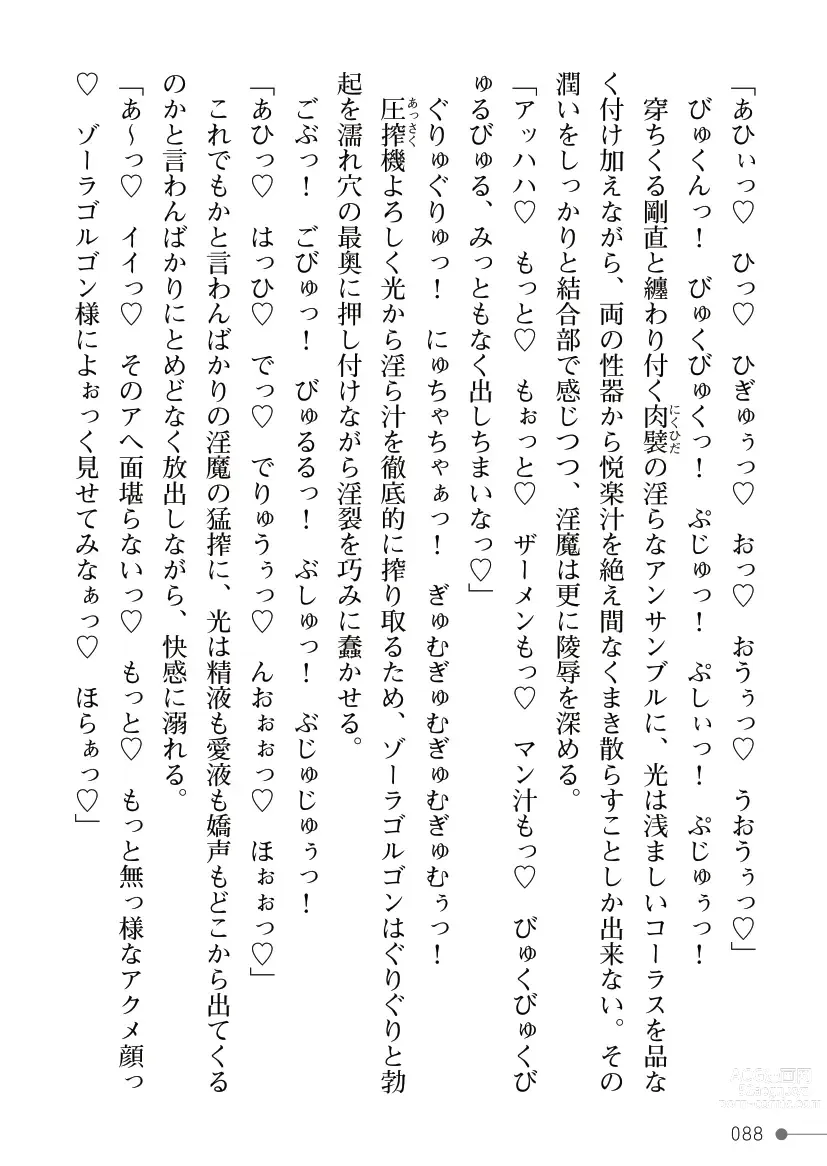 「あひぃっ♡　ひっ♡　ひぎゅぅっ♡　おっ♡　おうぅっ♡　うおうぅっ♡」
びゅくんっ！　びゅくびゅくっ！　ぷじゅっ！　ぷしぃっ！　ぷじゅぅっ！
穿ちくる剛直と纏わり付く肉襞の淫らなアンサンブルに、光は浅ましいコーラスを品な
にくひだ
く付け加えながら、両の性器から悦楽汁を絶え間なくまき散らすことしか出来ない。その
潤いをしっかりと結合部で感じつつ、淫魔は更に陵辱を深める。
「アッハハ♡　もっと♡　もぉっと♡　ザーメンもっ♡　マン汁もっ♡　びゅくびゅくび
ゅるびゅる、みっともなく出しちまいなっ♡」
ぐりゅぐりゅっ！　にゅちゃちゃぁっ！　ぎゅむぎゅむぎゅむぎゅむぅっ！
圧搾機よろしく光から淫ら汁を徹底的に搾り取るため、ゾーラゴルゴンはぐりぐりと勃
あっさく
起を濡れ穴の最奥に押し付けながら淫裂を巧みに蠢かせる。
ごぶっ！　ごびゅっ！　びゅるるっ！　ぶしゅっ！　ぶじゅじゅぅっ！
「あひっ♡　はっひ♡　でっ♡　でりゅうぅっ♡　んおぉぉっ♡　ほぉぉっ♡」
これでもかと言わんばかりの淫魔の猛搾に、光は精液も愛液も嬌声もどこから出てくる
のかと言わんばかりにとめどなく放出しながら、快感に溺れる。
「あ〜っ♡　イイっ♡　そのアヘ面堪らないっ♡　もっと♡　もっと無っ様なアクメ顔っ
♡　ゾーラゴルゴン様によぉっく見せてみなぁっ♡　ほらぁっ♡」
088